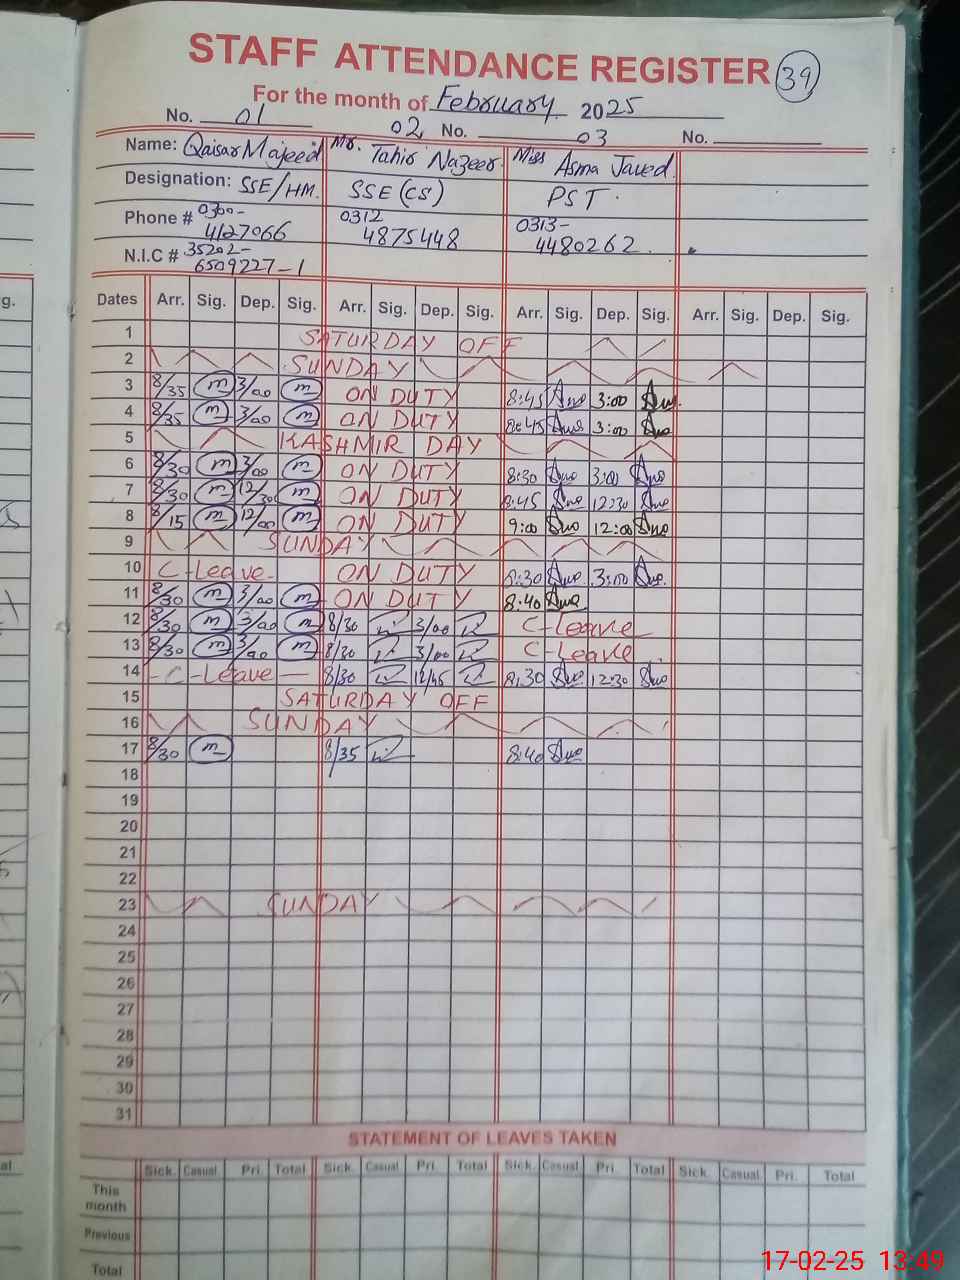 STAFF ATTENDANCE REGISTER 39
For the month of February 2025
No. 01 02 No. 03 No.
Name: Qaisar Majeed Mr. Tahir Nazeer Miss Asma Javed
Designation: SSE/HM. SSE (CS) PST.
Phone # 0300- 4127066 0312 4875448 0313- 4480262
N.I.C # 35202- 6509227-1
Dates Arr. Sig. Dep. Sig. Arr. Sig. Dep. Sig. Arr. Sig. Dep. Sig. Arr. Sig. Dep. Sig.
1 SATURDAY OFF
2 SUNDAY
3 8/35 m 3/00 m ON DUTY 8:45 3:00
4 8/35 m 3/00 m ON DUTY 8:45 3:00
5 KASHMIR DAY
6 8/30 m 3/00 m ON DUTY 8:30 3:00
7 8/30 m 12/30 m ON DUTY 8:45 12:30
8 8/15 m 12/00 m ON DUTY 9:00 12:00
9 SUNDAY
10 C-Leave ON DUTY 8:30 3:00
11 8/30 m 3/00 m ON DUTY 8:40
12 8/30 m 3/00 m 8/30 3/00 C-Leave
13 8/30 m 3/00 m 8/30 3/00 C-Leave
14 -C-Leave- 8/30 12/45 8:30 12:30
15 SATURDAY OFF
16 SUNDAY
17 8/30 m 8/35 8:40
18
19
20
21
22
23 SUNDAY
24
25
26
27
28
29
30
31
STATEMENT OF LEAVES TAKEN
Sick. Casual. Pri. Total Sick. Casual. Pri. Total Sick. Casual. Pri. Total Sick. Casual. Pri. Total
This month
Previous
Total
17-02-25 13:49